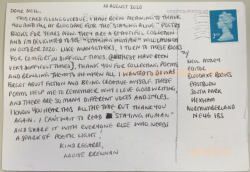 12 AUGUST 2020
DEAR NEIL,
THIS CARD IS LONG OVERDUE. I HAVE BEEN MEANING TO THANK
YOU AND ALL AT BLOODAXE FOR THE "STAYING ALIVE" POETRY
BOOKS FOR YEARS NOW. THEY ARE A BEAUTIFUL COLLECTION
AND I'M DELIGHTED TO SEE "STAYING HUMAN" WILL APPEAR
IN OCTOBER 2020. LIKE MANY OTHERS, I TURN TO THESE BOOKS
FOR COMFORT IN DIFFICULT TIMES (THESE HAVE BEEN
VERY DIFFICULT TIMES). THANK YOU FOR COLLECTING POEMS
AND BRINGING THEM TO US WHEN ALL I WANTED TO DO WAS
FORGET ABOUT FICTION AND BEING CREATIVE MYSELF. THESE
POEMS HELP ME TO REMEMBER WHY I LOVE WRITING,
AND THERE ARE SO MANY DIFFERENT VOICES AND STYLES.
I KNOW YOU HEAR THIS ALL THE TIME BUT THANK YOU
AGAIN. I CAN'T WAIT TO READ "STAYING HUMAN"
AND SHARE IT WITH EVERYONE ELSE WHO NEEDS
A SPARK OF POETIC LIGHT.
KIND REGARDS,
BRENNAN
NEIL ASTLEY
EDITOR
BLOODAXE BOOKS
EASTBURN
SOUTH PARK
HEXHAM
NORTHUMBERLAND
NE46 1BS